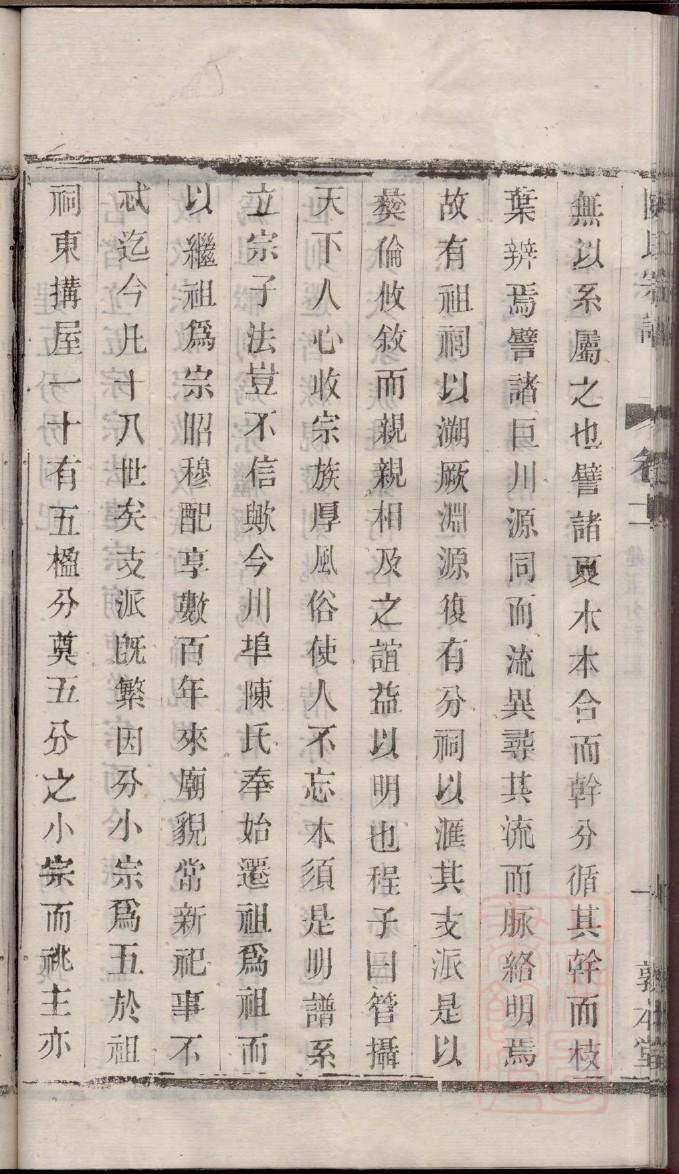 陳氏宗譜 卷十二 一 敦本堂
無以系屬之也譬諸夏木本合而幹分循其幹而枝
葉辨焉譬諸巨川源同而流異尋其流而脉絡明焉
故有祖祠以溯厥淵源復有分祠以滙其支派是以
彛倫攸敘而親親相及之誼益以明也程子曰管攝
天下人心收宗族厚風俗使人不忘本須是明譜系
立宗子法豈不信歟今川埠陳氏奉始遷祖爲祖而
以繼祖爲宗昭穆配享數百年來廟貌常新祀事不
忒迄今凡十八世矣支派旣繁因分小宗爲五於祖
祠東搆屋一十有五楹分奠五分之小宗而祧主亦